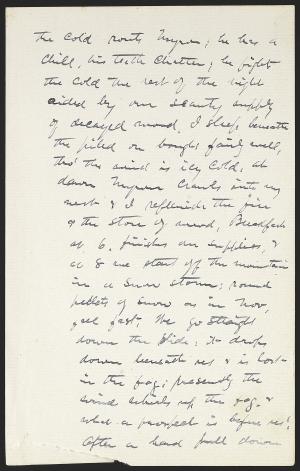 the cold routs Myron; he has a
chill, his teeth chatter; he fights
the cold the rest of the night
aided by our scanty supply
of decayed wood. I sleep beneath
the piled on boughs fairly well,
tho' the wind is icy cold; at
dawn Myron crawls into my
nest & I replenish the fire
& the store of wood. Breakfast
at 6, finishes our supplies, &
at 8 we start off the mountain
in a snow storm; round
pellets of snow as in Nov,
fall fast. We go straight
down the slide; it drops
down beneath us & is lost
in the fog; presently the
wind whirls up the fog &
what a prospect is before us!
After a hard pull down